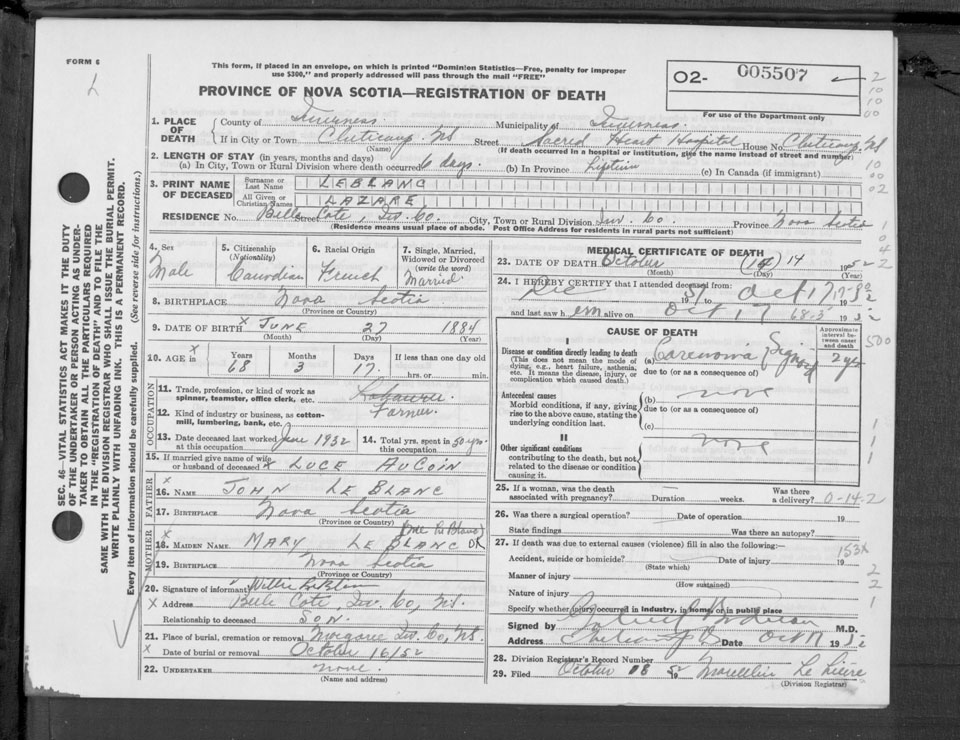 FORM 6
L
This form, if placed in an envelope, on which is printed "Dominion Statistics—Free, penalty for improper
use $300," and properly addressed will pass through the mail "FREE"
PROVINCE OF NOVA SCOTIA—REGISTRATION OF DEATH
O2- 005507
For use of the Department only
SEC. 46—VITAL STATISTICS ACT MAKES IT THE DUTY
OF THE UNDERTAKER OR PERSON ACTING AS UNDER-
TAKER TO OBTAIN ALL THE PARTICULARS REQUIRED
IN THE "REGISTRATION OF DEATH" AND TO FILE THE
SAME WITH THE DIVISION REGISTRAR WHO SHALL ISSUE THE BURIAL PERMIT.
WRITE PLAINLY WITH UNFADING INK. THIS IS A PERMANENT RECORD.
Every item of information should be carefully supplied. (See reverse side for instructions.)
1. PLACE OF DEATH
County of Inverness. Municipality of Inverness.
If in City or Town Cheticamp. NS Street Sacred Heart Hospital House No. Cheticamp. NS
(Name) (If death occurred in a hospital or institution, give the name instead of street and number)
2. LENGTH OF STAY (in years, months and days)
(a) In City, Town or Rural Division where death occurred 6 days. (b) In Province Lifetime (c) In Canada (if immigrant)
3. PRINT NAME OF DECEASED
Surname or Last Name LEBLANC
All Given or Christian Names LAZARE
RESIDENCE No. Street Belle Cote, Inv. Co. City, Town or Rural Division Inv. Co. Province Nova Scotia
(Residence means usual place of abode. Post Office Address for residents in rural parts not sufficient)
4. Sex Male
5. Citizenship (Nationality) Canadian
6. Racial Origin French
7. Single, Married, Widowed or Divorced (write the word) Married
8. BIRTHPLACE Nova Scotia
(Province or Country)
9. DATE OF BIRTH X JUNE 27 1884
(Month) (Day) (Year)
10. AGE in X Years 68 Months 3 Days 17. If less than one day old hrs. or min.
OCCUPATION
11. Trade, profession, or kind of work as spinner, teamster, office clerk, etc.
12. Kind of industry or business, as cotton-mill, lumbering, bank, etc. Farmer.
13. Date deceased last worked at this occupation June 1952
14. Total yrs. spent in this occupation 50 yrs.
15. If married give name of wife or husband of deceased X LUCE AUCOIN
FATHER
X
16. Name JOHN LE BLANC
17. BIRTHPLACE Nova Scotia
(Province or Country)
MOTHER
X
18. MAIDEN NAME MARY LE BLANC (nee Le Blanc) OK
19. BIRTHPLACE Nova Scotia
(Province or Country)
20. Signature of informant Willie LeBlanc
X Address Belle Cote, Inv. Co, NS.
Relationship to deceased SON.
21. Place of burial, cremation or removal Margaree Inv. Co, NS.
X Date of burial or removal October 16/52
22. UNDERTAKER none.
(Name and address)
MEDICAL CERTIFICATE OF DEATH
23. DATE OF DEATH October (14) 14 1952
(Month) (Day) (Year)
24. I HEREBY CERTIFY that I attended deceased from:
Dec 1951 to Oct 17 1952
and last saw h em alive on Oct 17 1952
CAUSE OF DEATH
Approximate interval between onset and death
I
Disease or condition directly leading to death
(This does not mean the mode of dying, e.g., heart failure, asthenia, etc. It means the disease, injury, or complication which caused death.)
(a) Carcinoma Sigmoid 2 yrs
due to (or as a consequence of)
Antecedent causes
Morbid conditions, if any, giving rise to the above cause, stating the underlying condition last.
(b) none
due to (or as a consequence of)
(c)
II
Other significant conditions
contributing to the death, but not related to the disease or condition causing it.
none
25. If a woman, was the death associated with pregnancy? Duration weeks. Was there a delivery? 0-14-2
26. Was there a surgical operation? Date of operation 19
State findings Was there an autopsy?
27. If death was due to external causes (violence) fill in also the following:—
153X
Accident, suicide or homicide? Date of injury 19
(State which)
Manner of injury
(How sustained)
Nature of injury
Specify whether injury occurred in industry, in home, or in public place
Signed by M.D.
Address Cheticamp Date Oct 17 1952
28. Division Registrar's Record Number
29. Filed October 18 1952
(Division Registrar)